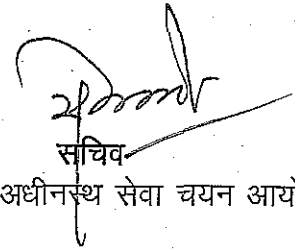 सचिव
अधीनस्थ सेवा चयन आयो